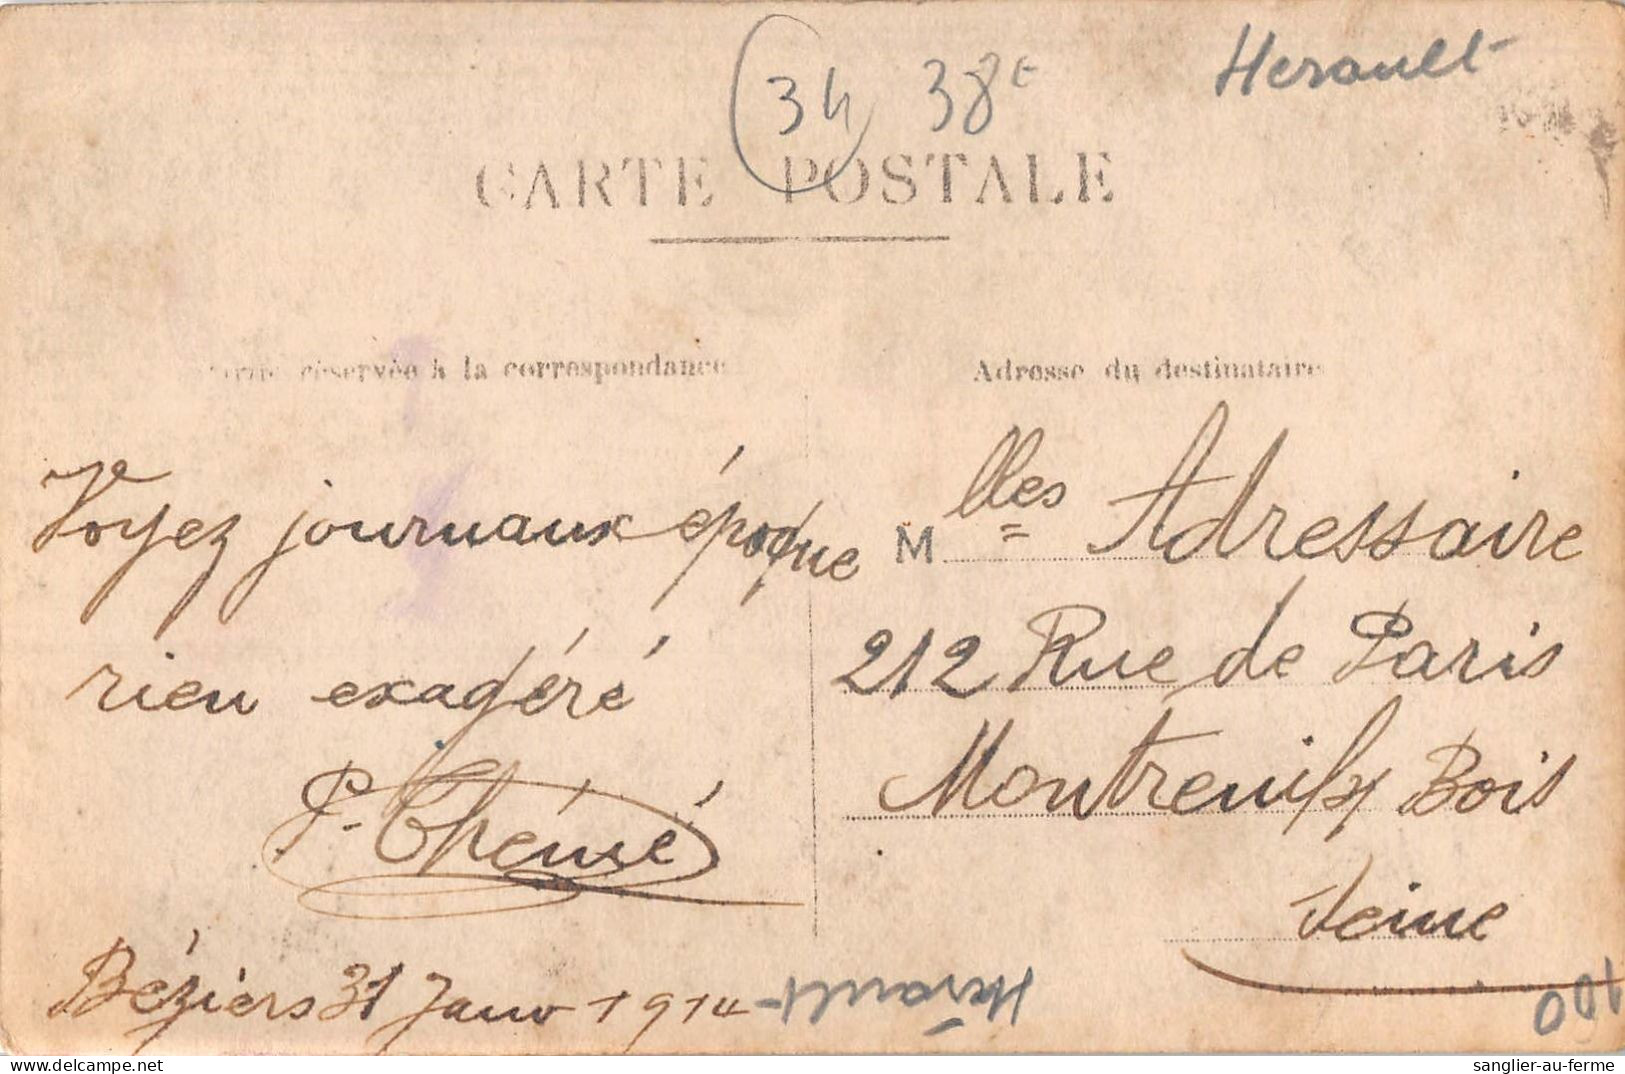 34 38E Herault
CARTE POSTALE
Partie réservée à la correspondance
Adresse du destinataire
Voyez journaux époque
rien exagéré
P. Thémé
Béziers 31 Janv 1914
Herault
Mlles Adressaire
212 Rue de Paris
Montreuil s/ Bois
Seine
100
sanglier-au-ferme